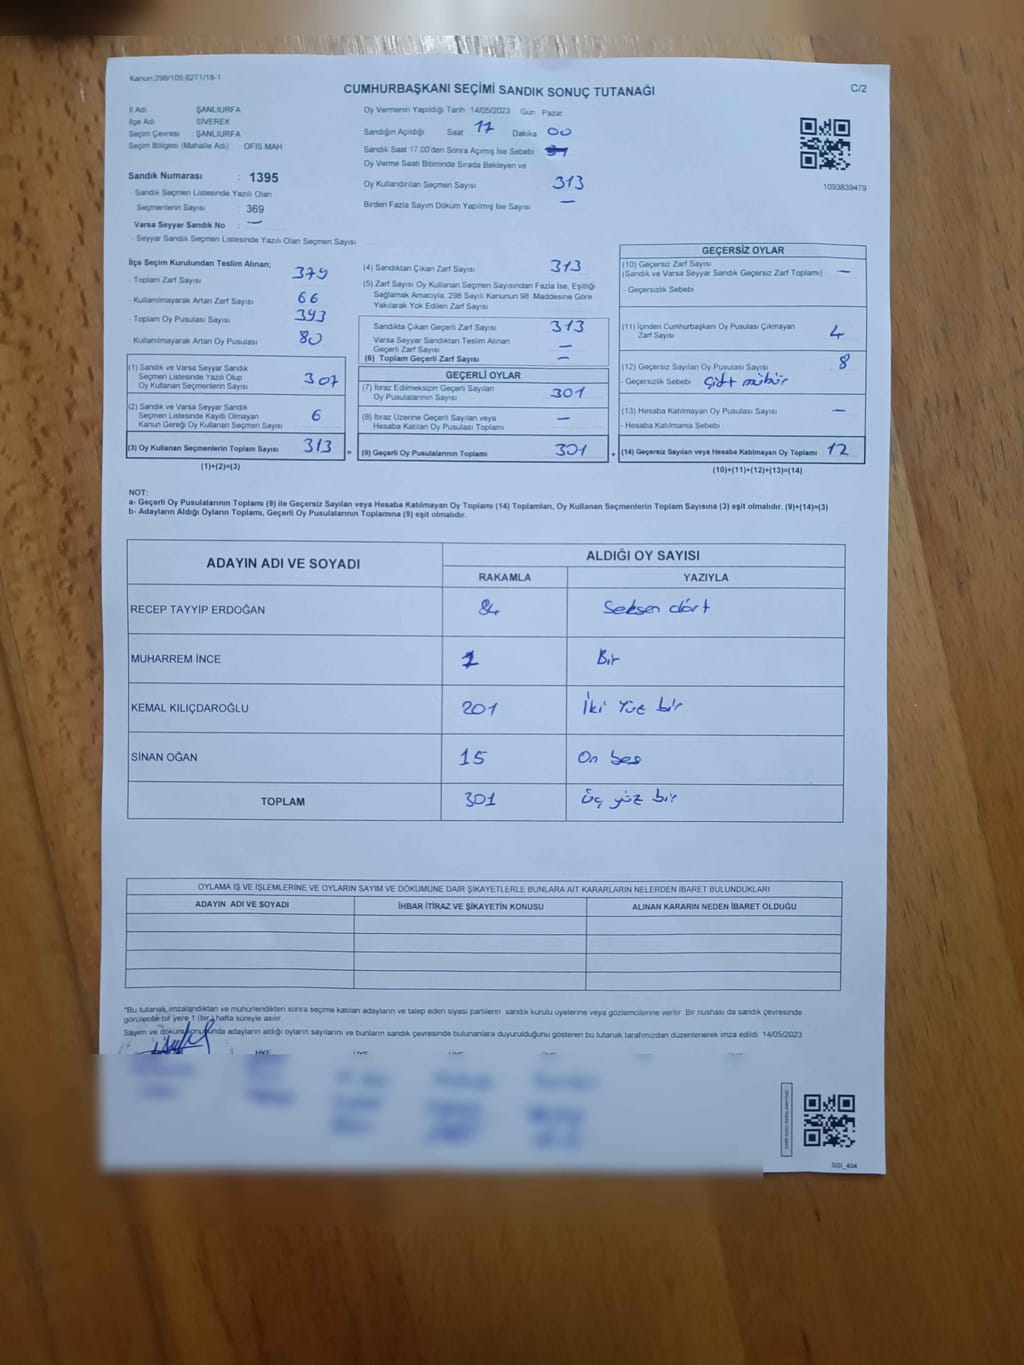 Kanun:298/105;6271/18-1
CUMHURBAŞKANI SEÇİMİ SANDIK SONUÇ TUTANAĞI
C/2
İl Adı ŞANLIURFA
İlçe Adı SİVEREK
Seçim Çevresi : ŞANLIURFA
Seçim Bölgesi (Mahalle Adı) OFİS MAH
Sandık Numarası : 1395
- Sandık Seçmen Listesinde Yazılı Olan
Seçmenlerin Sayısı : 369
Varsa Seyyar Sandık No : —
- Seyyar Sandık Seçmen Listesinde Yazılı Olan Seçmen Sayısı
Oy Vermenin Yapıldığı Tarih 14/05/2023 Gün Pazar
Sandığın Açıldığı Saat 17 Dakika 00
Sandık Saat 17:00'den Sonra Açımış İse Sebebi
Oy Verme Saati Bitiminde Sırada Bekleyen ve
Oy Kullandırılan Seçmen Sayısı 313
Birden Fazla Sayım Döküm Yapılmış İse Sayısı —
1093839479
İlçe Seçim Kurulundan Teslim Alınan;
- Toplam Zarf Sayısı 379
- Kullanılmayarak Artan Zarf Sayısı 66
- Toplam Oy Pusulası Sayısı 393
- Kullanılmayarak Artan Oy Pusulası 80
(1) Sandık ve Varsa Seyyar Sandık
Seçmen Listesinde Yazılı Olup
Oy Kullanan Seçmenlerin Sayısı 307
(2) Sandık ve Varsa Seyyar Sandık
Seçmen Listesinde Kayıtlı Olmayan
Kanun Gereği Oy Kullanan Seçmen Sayısı 6
(3) Oy Kullanan Seçmenlerin Toplam Sayısı 313 =
(1)+(2)=(3)
(4) Sandıktan Çıkan Zarf Sayısı 313
(5) Zarf Sayısı Oy Kullanan Seçmen Sayısından Fazla İse, Eşitliği
Sağlamak Amacıyla; 298 Sayılı Kanunun 98. Maddesine Göre
Yakılarak Yok Edilen Zarf Sayısı
Sandıkta Çıkan Geçerli Zarf Sayısı 313
Varsa Seyyar Sandıktan Teslim Alınan
Geçerli Zarf Sayısı —
(6) Toplam Geçerli Zarf Sayısı —
GEÇERLİ OYLAR
(7) İtiraz Edilmeksizin Geçerli Sayılan
Oy Pusulalarının Sayısı 301
(8) İtiraz Üzerine Geçerli Sayılan veya
Hesaba Katılan Oy Pusulası Toplamı —
(9) Geçerli Oy Pusulalarının Toplamı 301 +
GEÇERSİZ OYLAR
(10) Geçersiz Zarf Sayısı
(Sandık ve Varsa Seyyar Sandık Geçersiz Zarf Toplamı) —
- Geçersizlik Sebebi :
(11) İçinden Cumhurbaşkanı Oy Pusulası Çıkmayan
Zarf Sayısı 4
(12) Geçersiz Sayılan Oy Pusulası Sayısı 8
- Geçersizlik Sebebi : Çift mühür
(13) Hesaba Katılmayan Oy Pusulası Sayısı —
- Hesaba Katılmama Sebebi :
(14) Geçersiz Sayılan veya Hesaba Katılmayan Oy Toplamı 12
(10)+(11)+(12)+(13)=(14)
NOT:
a- Geçerli Oy Pusulalarının Toplamı (9) ile Geçersiz Sayılan veya Hesaba Katılmayan Oy Toplamı (14) Toplamları, Oy Kullanan Seçmenlerin Toplam Sayısına (3) eşit olmalıdır. (9)+(14)=(3)
b- Adayların Aldığı Oyların Toplamı, Geçerli Oy Pusulalarının Toplamına (9) eşit olmalıdır.
ADAYIN ADI VE SOYADI
ALDIĞI OY SAYISI
RAKAMLA YAZIYLA
RECEP TAYYİP ERDOĞAN 84 Seksen dört
MUHARREM İNCE 1 Bir
KEMAL KILIÇDAROĞLU 201 İki Yüz bir
SİNAN OĞAN 15 On beş
TOPLAM 301 üç yüz bir
OYLAMA İŞ VE İŞLEMLERİNE VE OYLARIN SAYIM VE DÖKÜMÜNE DAİR ŞİKAYETLERLE BUNLARA AİT KARARLARIN NELERDEN İBARET BULUNDUKLARI
ADAYIN ADI VE SOYADI İHBAR İTİRAZ VE ŞİKAYETİN KONUSU ALINAN KARARIN NEDEN İBARET OLDUĞU
*Bu tutanak imzalandıktan ve mühürlendikten sonra seçime katılan adayların ve talep eden siyasi partilerin sandık kurulu üyelerine veya gözlemcilerine verilir. Bir nüshası da sandık çevresinde
görülecek bir yere 1 (bir) hafta süreyle asılır.
Sayım ve döküm sonucunda adayların aldığı oyların sayılarını ve bunların sandık çevresinde bulunanlara duyurulduğunu gösteren bu tutanak tarafımızdan düzenlenerek imza edildi. 14/05/2023
SSI_404